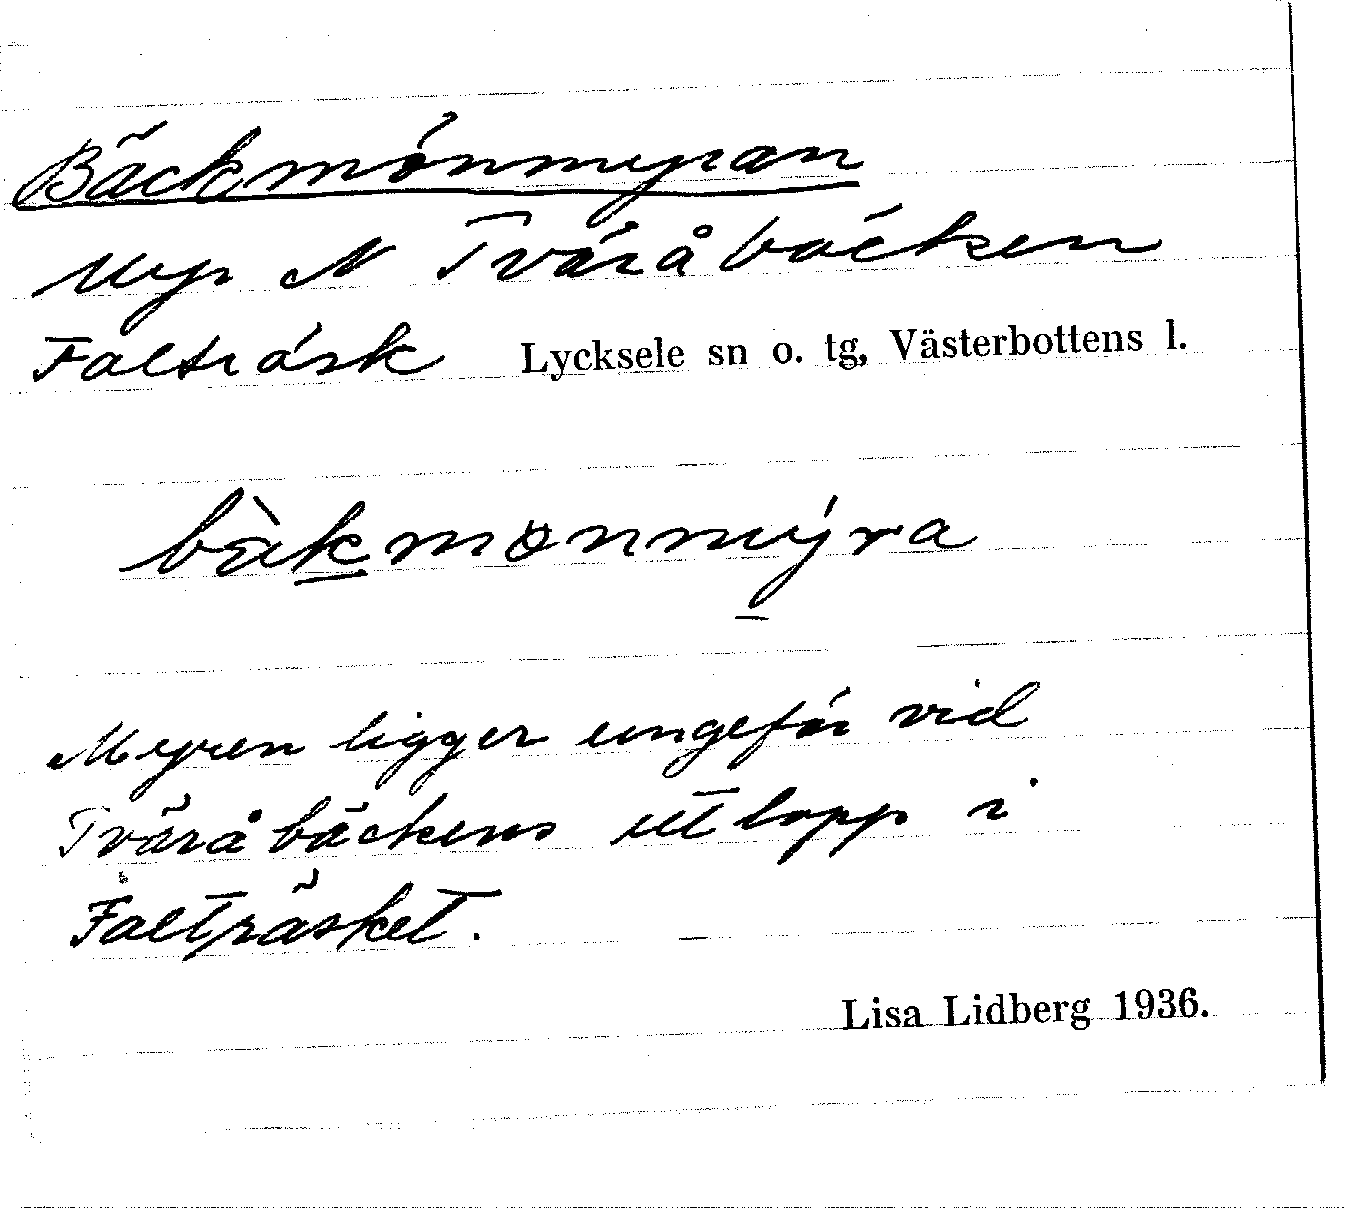 Bäckmönmyran
Myr N Tväråbäcken
Falträsk Lycksele sn o. tg, Västerbottens l.
bàkmönmýra
Myren ligger ungefär vid
Tväråbäckens utlopp i
Falträsket.
Lisa Lidberg 1936.